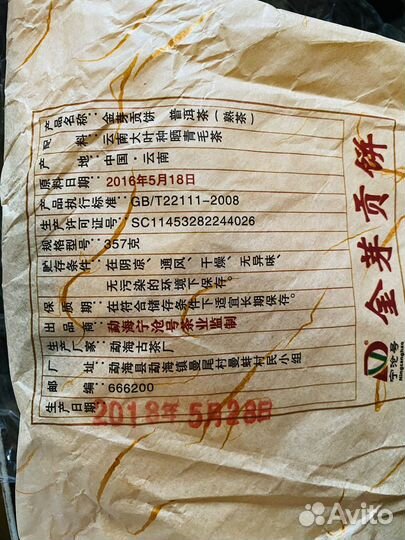 产品名称：金芽贡饼 普洱茶（熟茶）
配 料：云南大叶种晒青毛茶
产 地：中国·云南
原料日期：2016年5月18日
产品执行标准：GB/T22111-2008
生产许可证号：SC11453282244026
规格型号：357克
贮存条件：在阴凉、通风、干燥、无异味、
无污染的环境下保存。
保 质 期：在符合储存条件下适宜长期保存。
出 品 商：勐海宁沧号茶业监制
生产厂家：勐海古茶厂
厂 址：勐海县勐海镇曼尾村曼蚌村民小组
邮 编：666200
生产日期
2018年5月28日
金芽贡饼
宁沧号
Ningcanghao
Avito